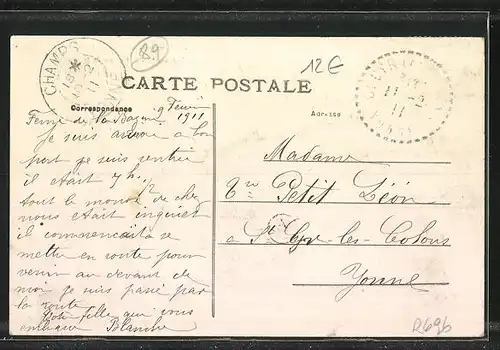 CHAMPS
89
12€
CARTE POSTALE
Correspondance
Adresse
9 Février
Ferme de la 1911
Je suis arrivée a bon
port je suis rentrée
il était 7 h. 1/2
tout le monde de chez
nous était inquiet
il commencait a se
mettre en route pour
venir au devant de
moi je suis passé par
la route
Votre fille qui vous
embrasse Blanche
Madame
Vve Petit Léon
a St Cyr-les-Colons
Yonne
R696